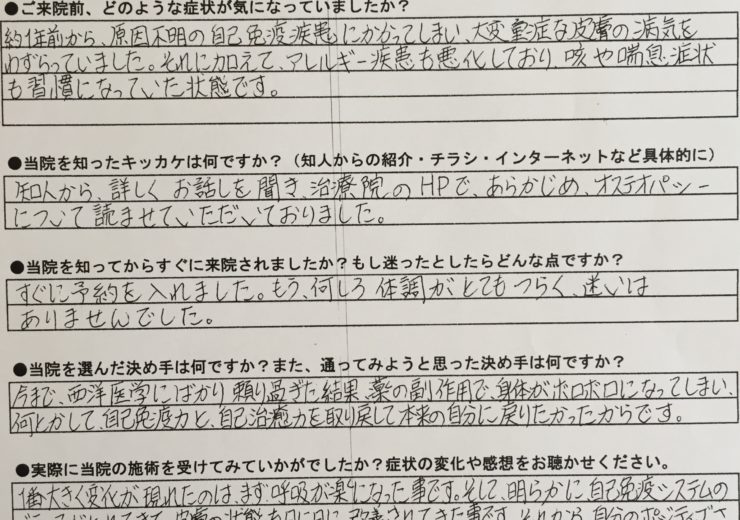 ●ご来院前、どのような症状が気になっていましたか？
約1年前から、原因不明の自己免疫疾患にかかってしまい、大変重症な皮膚の病気を
わずらっていました。それに加えて、アレルギー疾患も悪化しており、咳や喘息症状
も習慣になっていた状態です。
●当院を知ったキッカケは何ですか？（知人からの紹介・チラシ・インターネットなど具体的に）
知人から、詳しくお話しを聞き、治療院のHPで、あらかじめ、オステオパシー
について読ませていただいておりました。
●当院を知ってからすぐに来院されましたか？もし迷ったとしたらどんな点ですか？
すぐに予約を入れました。もう、何しろ体調がとてもつらく、迷いは
ありませんでした。
●当院を選んだ決め手は何ですか？また、通ってみようと思った決め手は何ですか？
今まで、西洋医学にばかり頼り過ぎた結果、薬の副作用で、身体がボロボロになってしまい、
何とかして、自己免疫力と、自己治癒力を取り戻して本来の自分に戻りたかったからです。
●実際に当院の施術を受けてみていかがでしたか？症状の変化や感想をお聴かせください。
1番大きく変化が現れたのは、まず呼吸が楽になった事です。そして、明らかに自己免疫システムの
皮膚の状態も日に日に改善されてきた事です。それから、自分の